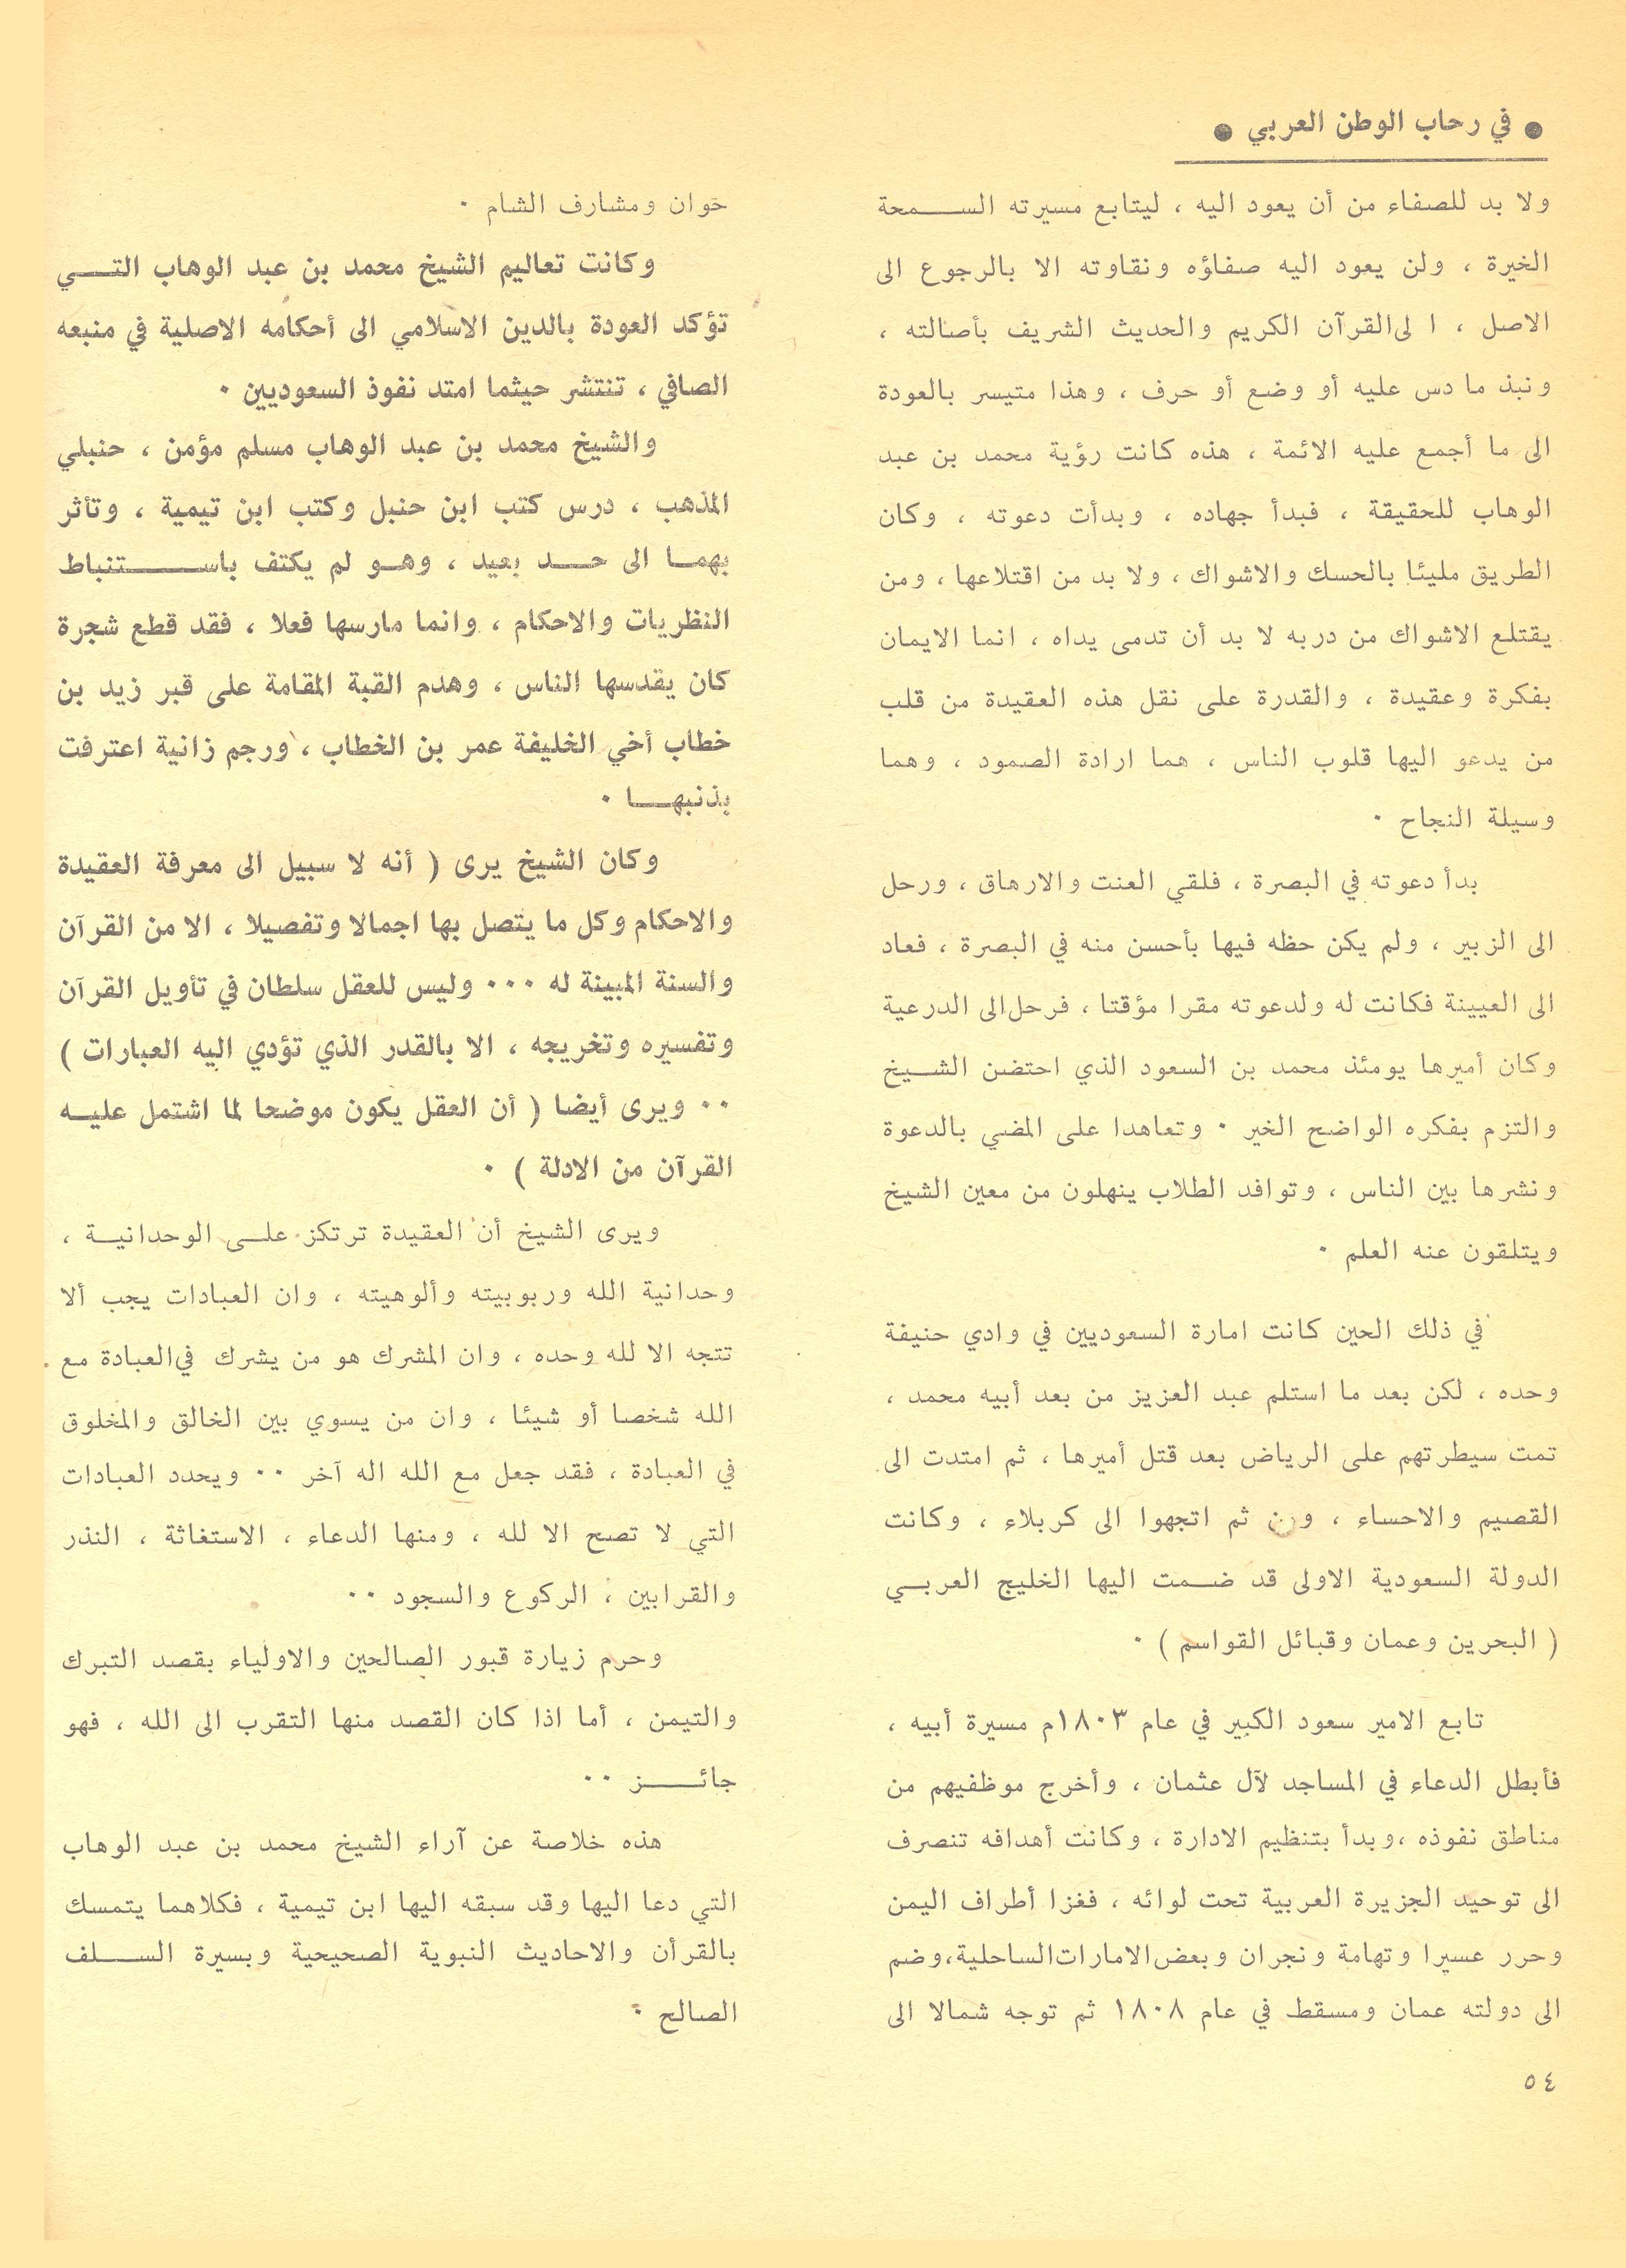 ● في رحاب الوطن العربي ●
ولا بد للصفاء من أن يعود اليه ، ليتابع مسيرته الســـمحة
الخيرة ، ولن يعود اليه صفاؤه ونقاوته الا بالرجوع الى
الاصل ، ا لى القرآن الكريم والحديث الشريف بأصالته ،
ونبذ ما دس عليه أو وضع أو حرف ، وهذا متيسر بالعودة
الى ما أجمع عليه الائمة ، هذه كانت رؤية محمد بن عبد
الوهاب للحقيقة ، فبدأ جهاده ، وبدأت دعوته ، وكان
الطريق مليئا بالحسك والاشواك ، ولا بد من اقتلاعها ، ومن
يقتلع الاشواك من دربه لا بد أن تدمى يداه ، انما الايمان
بفكرة وعقيدة ، والقدرة على نقل هذه العقيدة من قلب
من يدعو اليها قلوب الناس ، هما ارادة الصمود ، وهما
وسيلة النجاح ٠
بدأ دعوته في البصرة ، فلقي العنت والارهاق ، ورحل
الى الزبير ، ولم يكن حظه فيها بأحسن منه في البصرة ، فعاد
الى العيينة فكانت له ولدعوته مقرا مؤقتا ، فرحل الى الدرعية
وكان أميرها يومئذ محمد بن السعود الذي احتضن الشـيخ
والتزم بفكره الواضح الخير ٠ وتعاهدا على المضي بالدعوة
ونشرها بين الناس ، وتوافد الطلاب ينهلون من معين الشيخ
ويتلقون عنه العلم ٠
في ذلك الحين كانت امارة السعوديين في وادي حنيفة
وحده ، لكن بعد ما استلم عبد العزيز من بعد أبيه محمد ،
تمت سيطرتهم على الرياض بعد قتل أميرها ، ثم امتدت الى
القصيم والاحساء ، ومن ثم اتجهوا الى كربلاء ، وكانت
الدولة السعودية الاولى قد ضـمت اليها الخليج العربـي
( البحرين وعمان وقبائل القواسم ) ٠
تابع الامير سعود الكبير في عام ١٨٠٣م مسيرة أبيه ،
فأبطل الدعاء في المساجد لآل عثمان ، وأخرج موظفيهم من
مناطق نفوذه ،وبدأ بتنظيم الادارة ، وكانت أهدافه تنصرف
الى توحيد الجزيرة العربية تحت لوائه ، فغزا أطراف اليمن
وحرر عسيرا وتهامة ونجران وبعض الامارات الساحلية، وضم
الى دولته عمان ومسقط في عام ١٨٠٨ ثم توجه شمالا الى
خوان ومشارف الشام ٠
وكانت تعاليم الشيخ محمد بن عبد الوهاب التـــي
تؤكد العودة بالدين الاسلامي الى أحكامه الاصلية في منبعه
الصافي ، تنتشر حيثما امتد نفوذ السعوديين ٠
والشيخ محمد بن عبد الوهاب مسلم مؤمن ، حنبلي
المذهب ، درس كتب ابن حنبل وكتب ابن تيمية ، وتأثر
بهمـا الى حـــد بعيد ، وهـو لم يكتف باســـــتنباط
النظريات والاحكام ، وانما مارسها فعلا ، فقد قطع شجرة
كان يقدسها الناس ، وهدم القبة المقامة على قبر زيد بن
خطاب أخي الخليفة عمر بن الخطاب ، ورجم زانية اعترفت
بذنبهـــا ٠
وكان الشيخ يرى ( أنه لا سبيل الى معرفة العقيدة
والاحكام وكل ما يتصل بها اجمالا وتفصيلا ، الا من القرآن
والسنة المبينة له ٠٠٠ وليس للعقل سلطان في تأويل القرآن
وتفسيره وتخريجه ، الا بالقدر الذي تؤدي اليه العبارات )
٠٠ ويرى أيضا ( أن العقل يكون موضحا لما اشتمل عليـه
القرآن من الادلة ) ٠
ويرى الشيخ أن العقيدة ترتكز علـى الوحدانيـة ،
وحدانية الله وربوبيته وألوهيته ، وان العبادات يجب ألا
تتجه الا لله وحده ، وان المشرك هو من يشرك في العبادة مع
الله شخصا أو شيئا ، وان من يسوي بين الخالق والمخلوق
في العبادة ، فقد جعل مع الله اله آخر ٠٠ ويحدد العبادات
التي لا تصح الا لله ، ومنها الدعاء ، الاستغاثة ، النذر
والقرابين ، الركوع والسجود ٠٠
وحرم زيارة قبور الصالحين والاولياء بقصد التبرك
والتيمن ، أما اذا كان القصد منها التقرب الى الله ، فهو
جائـــز ٠٠
هذه خلاصة عن آراء الشيخ محمد بن عبد الوهاب
التي دعا اليها وقد سبقه اليها ابن تيمية ، فكلاهما يتمسك
بالقرأن والاحاديث النبوية الصحيحية وبسيرة الســـلف
الصالح ٠
٥٤